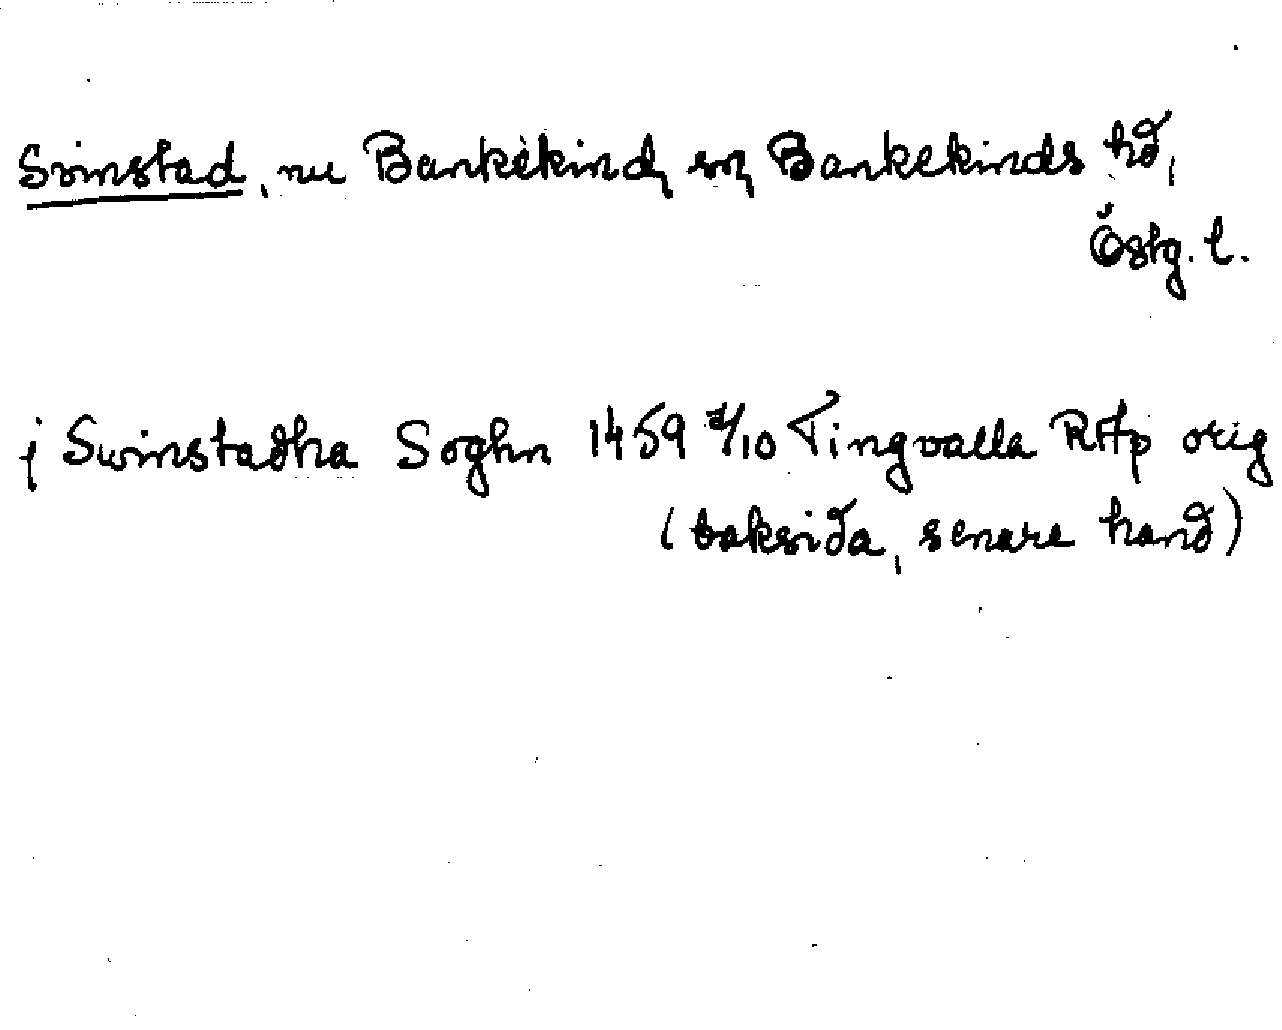 Svinstad, nu Bankekind, sn, Bankekinds hd,
Östg. l.
j Swinstadha Soghn 1459 /10 Tingvalla RAp orig
(baksida, senare hand)